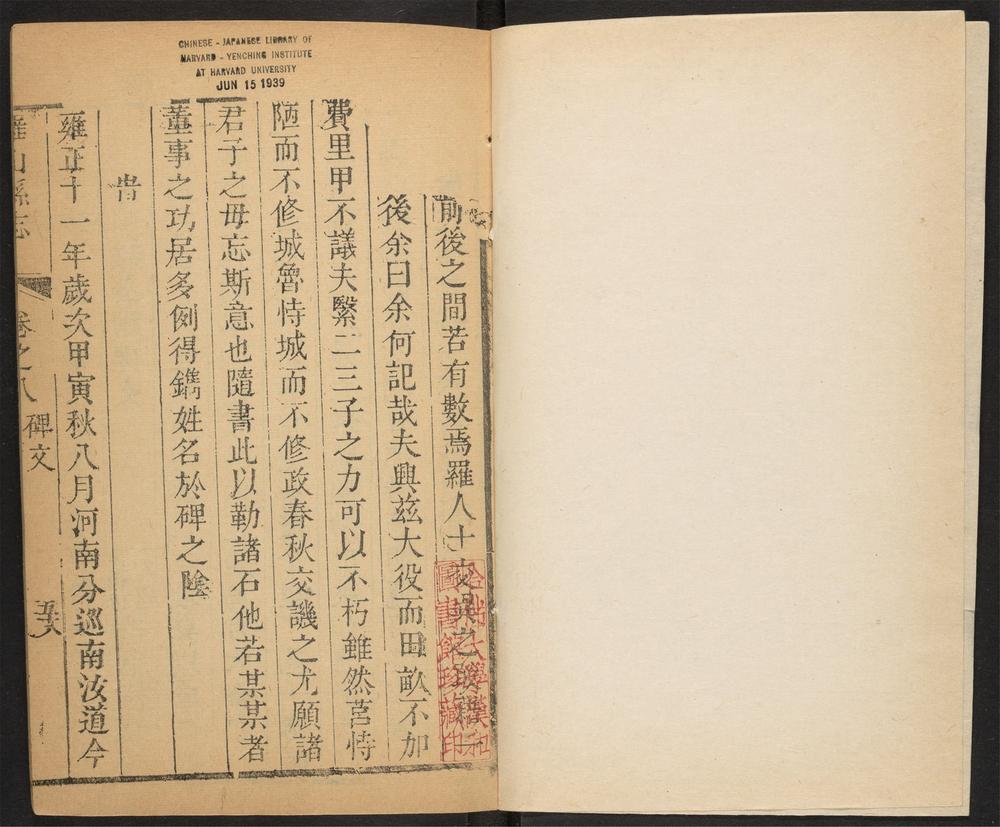 CHINESE - JAPANESE LIBRARY OF
HARVARD - YENCHING INSTITUTE
AT HARVARD UNIVERSITY
JUN 15 1939
前後之間若有數焉羅人士
後余曰余何記哉夫興茲大役而田畝不加
費里甲不議夫繫二三子之力可以不朽雖然莒恃
陋而不修城魯恃城而不修政春秋交譏之尤願諸
君子之毋忘斯意也隨書此以勒諸石他若某某者
董事之功居多例得鐫姓名於碑之陰
旹
雍正十一年歲次甲寅秋八月河南分巡南汝道今
羅山縣志
卷之八 碑文
哈佛大學漢和
圖書館珍藏印